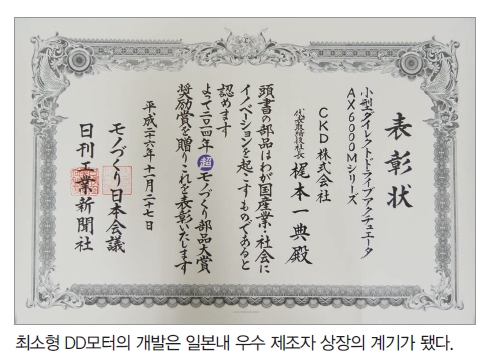 表彰状
小型ダイレクトドライブアクチュエータ
AX6000Mシリーズ
CKD株式会社
代表取締役社長 梶本一典殿
頭書の部品はわが国産業・社会に
イノベーションを起こすものであると
認めます
よって二〇一四年超モノづくり部品大賞
奨励賞を贈りこれを表彰いたします
平成二十六年十一月二十七日
モノづくり日本会議
日刊工業新聞社
최소형 DD모터의 개발은 일본내 우수 제조자 상장의 계기가 됐다.